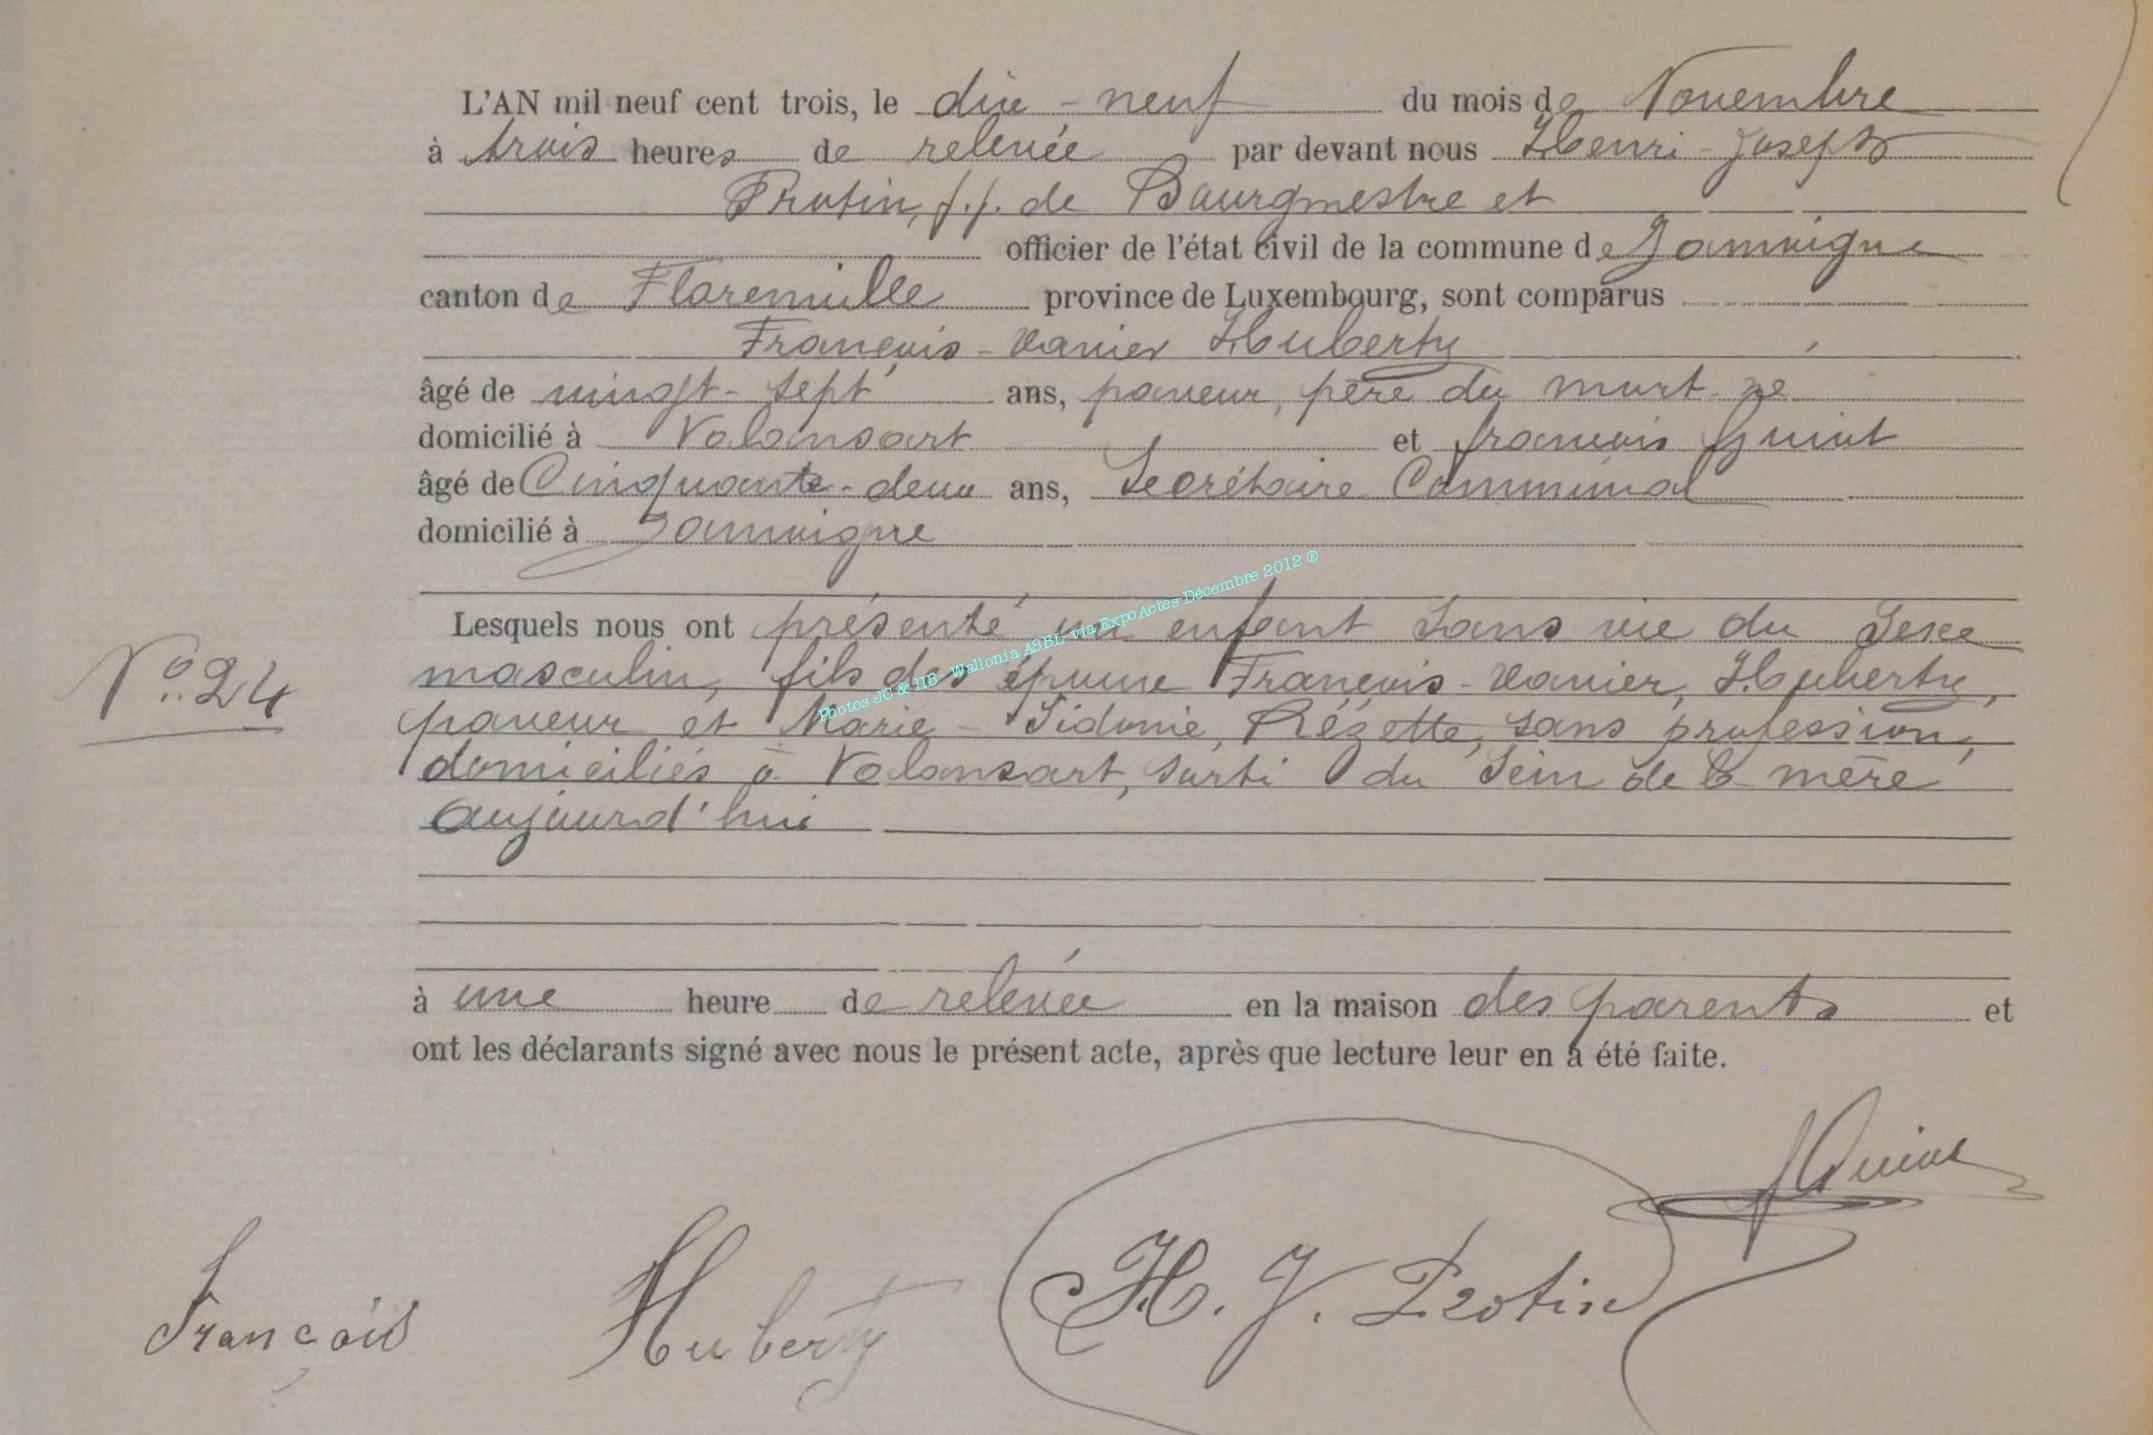 L'AN mil neuf cent trois, le dix-neuf du mois de Novembre
à trois heures de relevée par devant nous Henri-Joseph
Protin, f.f. de Bourgmestre et
officier de l'état civil de la commune de Jamoigne
canton de Florenville province de Luxembourg, sont comparus
François-Xavier Huberty
âgé de vingt-sept ans, paveur, père du mort-né
domicilié à Valansart et françois Guiot
âgé de Cinquante-deux ans, Secrétaire Communal
domicilié à Jamoigne
Lesquels nous ont présenté un enfant sans vie du Sexe
masculin, fils des époux François-Xavier, Huberty,
paveur et Marie-Sidonie, Rézette, sans profession,
domiciliés à Valansart, sorti du sein de la mère
aujourd'hui
N° 24
à une heure de relevée en la maison des parents et
ont les déclarants signé avec nous le présent acte, après que lecture leur en a été faite.
François Huberty H. J. Protin
Photos JC & HB Wallonia ASBL via ExpoActes Décembre 2012 ®